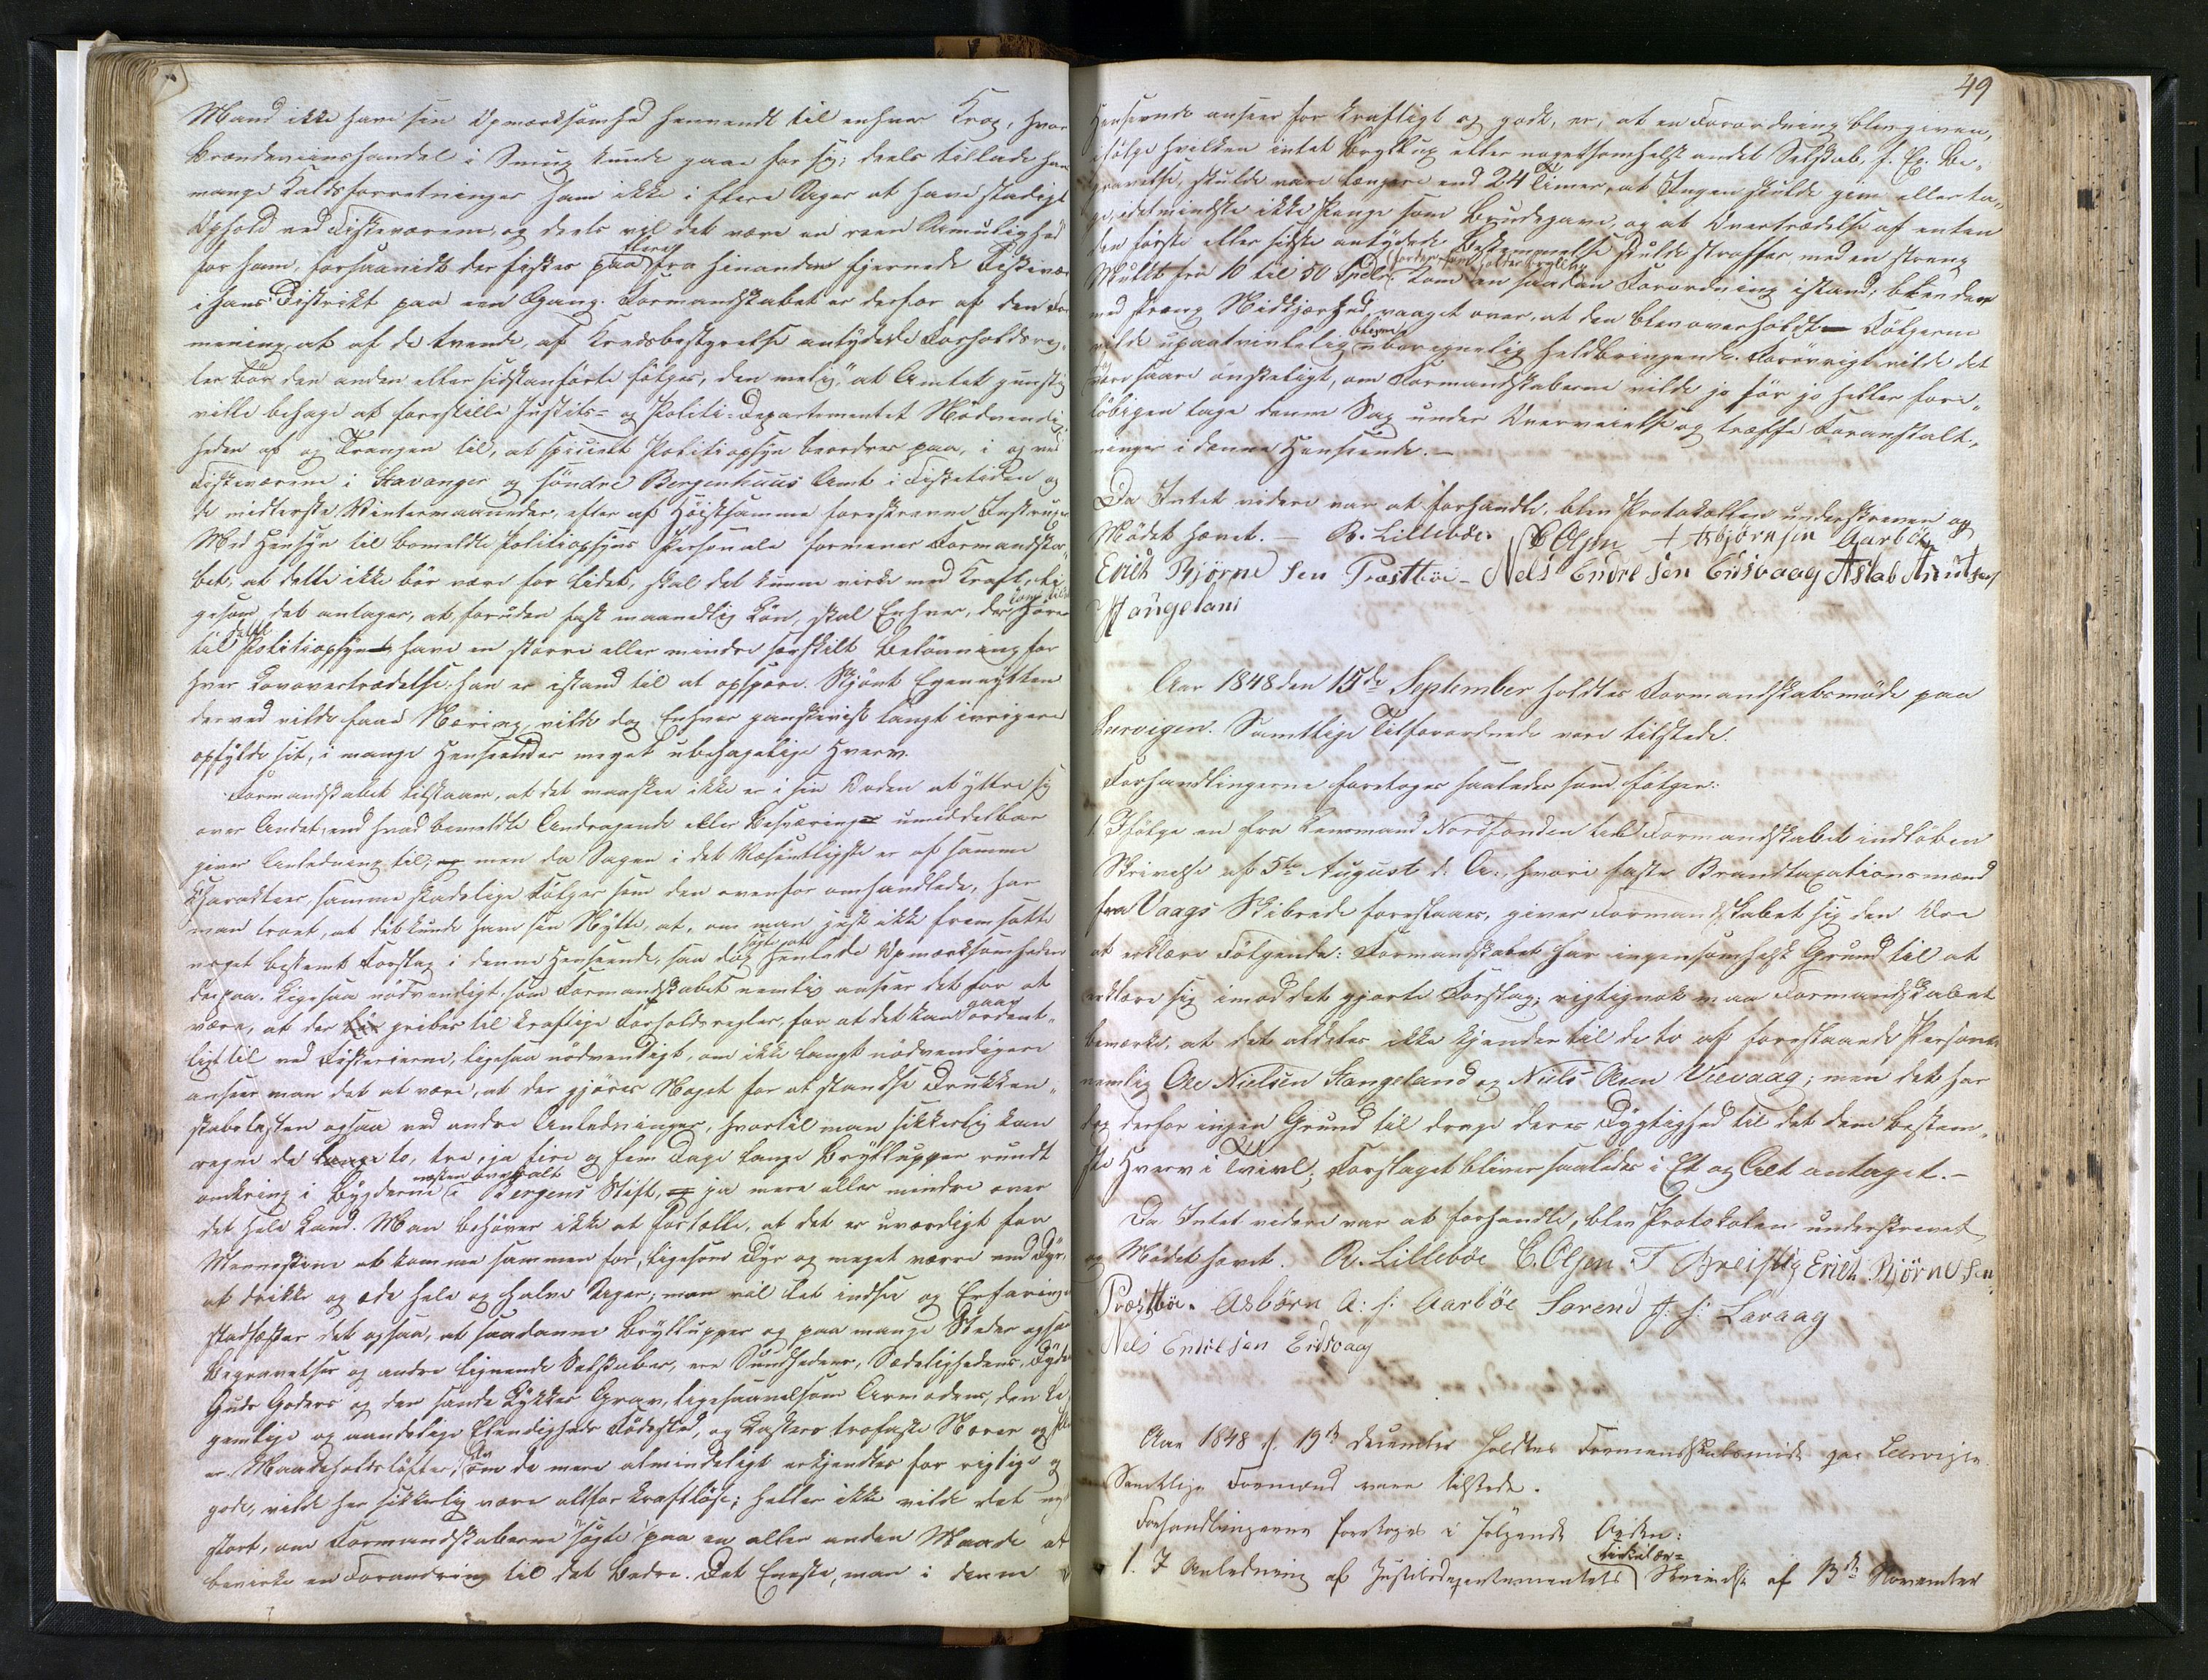 Mand ikke have sin Opmærksomhed henvendt til enhver Krog, hvor
Brændeviinshandel i Smug kunde gaae for sig; deels tillade hans
mange Kaldsforretninger ham ikke i flere Dager at have stadigt
Ophold ved Fiskeværene, og deels vil det være en reen Aumulighed
for ham, forsaavidt der fiskes paa flere fra hinanden fjernede Fiskevær
i hans Distrikt paa een Gang. Formandskabet er derfor af den For
mening, at af de tvende, af Kredsbestyrelse antydede Forholdsreg-
ler bör den anden eller sidstanförte fölges, den nemlig: "at Amtet gunstig
ville behage at forestille Justits- og Politi-Departementet Nödvendig-
heden af og Trangen til, at specielt Politiopsyn beordres paa, i og ved
Fiskeværene i Stavanger og söndre Bergenhuus Amt i Fisketiden og
de midterste Vintermaaneder, efter af Höistsamme foreskrevne Instruxer
Med Hensyn til bemeldte Politiopsyns Personale formener Formandska-
bet, at dette ikke bör være for lidet, skal det kunne virke med Kraft, li-
gesom det antages, at foruden fast maanedlig Lön, skal Enhver, der hörer
til dette Politiopsyn have en större eller mindre særskilt Belönning for
hver Lovovertrædelse han er istand til at opspore. Skjönt Egennytten
derved vilde faae Næring, vilde dog Enhver ganskevist langt ivrigere
opfylde sit, i mange Henseender meget ubehagelige Hverv.
Formandskabet tilstaaer, at det maaskee ikke er i sin Orden at yttre sig
over Andet, end hvad bemeldte Andragende eller Besværing umiddelbar
giver Anledning til; men da Sagen i det Væsentligste er af samme
Charakteer, samme skadelige Fölger som den ovenfor omhandlede, har
man troet, at det kunde have sin Nytte, at, om man just ikke fremsatte
noget bestemt Forslag i denne Henseende, saa dog henlede Opmærksomheden
derpaa. Ligesaa nödvendigt, som Formandskabet nemlig anseer det for at
være, at der gribes til kraftige Forholdsregler, for at det kan gaae ordent-
ligt til ved Fiskerierne, ligesaa nödvendigt, om ikke langt nödvendigere
anseer man det at være, at der gjöres Noget for at standse Drukken-
skabslasten ogsaa ved andre Anledninger, hvortil man sikkerlig kan
regne de to, tre, ja fire og fem Dage lange Bryllupper rundt
omkring i Bygderne næsten overalt i Bergens Stift, ja mere eller mindre over
det hele Land. Man behöver ikke at fortælle, at det er uværdigt for
Mennesker at komme sammen for, ligesom Dyr og meget værre end Dyr,
at drikke og æde hele og halve Uger; man vil let indsee og Erfaringen
stadfæster det ogsaa, at saadanne Bryllupper og paa mange Steder ogsaa
Begravelser og andre lignende Selskaber, ere Sundhedens, Sædelighedens, Dyden
Guds Goders og den sande Lykkes Grav, ligesaavelsom Armodens, den le-
gemlige og aandelige Elendigheds Födested, og Lasters trofaste Nærer og
er. Maadeholdslöfter, om de mere almindeligt erkjendtes for rigtige og
gode, vilde her sikkerlig være altfor kraftlöse; heller ikke vilde det
stort, om Formandskaberne sögte paa en eller anden Maade at
bevirke en Forandring til det Bedre. Det Eneste, man i denne
49
Henseende anseer for kraftigt og godt, er, at en Forordning blev given,
ifölge hvilken intet Bryllup eller nogetsomhelst andet Selskab, f. Ex. Be-
gravelse, skulde vare længere end 24 Timer, at Ingen skulde give eller ta-
ge, idetmindste ikke Penge som Brudegave, og at Overtrædelse af enten
den förste eller sidste antydede Bestemmelse skulde straffes med en streng
Mulkt fra 10 til 50 Spdlr. Kom en saadan Forordning istand; blev der
med streng Nidkjærhed vaaget over, at den blev overholdt – Fölgerne
vilde upaatvivlelig blive uberegnelig heldbringende. Forövrigt vilde det
være saare önskeligt, om Formandskaberne vilde jo för jo heller fore-
löbigen tage denne Sag under Overveielse og træffe Foranstalt-
ninger i denne Henseende. –
Da Intet videre var at forhandle, blev Protokollen underskreven og
Mödet hævet. – R. Lilleböe. C Olsen Asbjörnsen Aarböe
Erich Bjørne sen Præstböe – Nels Endre sen Eidsvaag Aslak Knutsen
Hangeland
Aar 1848 den 15de September holdtes Formandskabsmöde paa
Lervigen. Samtlige Tilforordnede vare tilstede.
Forhandlingerne foretoges saaledes som fölger:
1. Ifölge en fra Lensmand Nordfonden til Formandskabet indlöben
Skrivelse af 5te August d. A., hvori faste Brandtaxationsmænd
fra Vaags Skibrede forestaaes, giver Formandskabet sig den Ære
at erklære Fölgende: Formandskabet har ingensomhelst Grund til at
erklære sig imod det gjorte Forslag; rigtignok maa Formandskabet
bemærke, at det aldeles ikke kjender til de to af forestaaede Personer
nemlig Ole Nielsen Stangeland og Niels Olsen Vievaag; men det har
dog derfor ingen Grund til drage deres Dygtighed til det dem bestem-
te Hverv i Tvivl; Forslaget bliver saaledes i Et og Alt antaget. –
Da Intet videre var at forhandle, blev Protokolen underskrevet
og Mödet hævet. R. Lillebøe C. Olsen. T Breistig Erich Bjørne sen
Præstböe. Asbörn A: s: Aarböe Sørend J. s: Lavaag
Nels Endre sen Eidsvaag
Aar 1848 d. 19de December holdtes Formandskabsmöde paa Lervigen.
Samtlige Formænd vare tilstede.
Forhandlingerne foretoges i fölgende Orden:
1. I Anledning af Justitsdepartementets Cirkulær- Skrivelse af 13de November